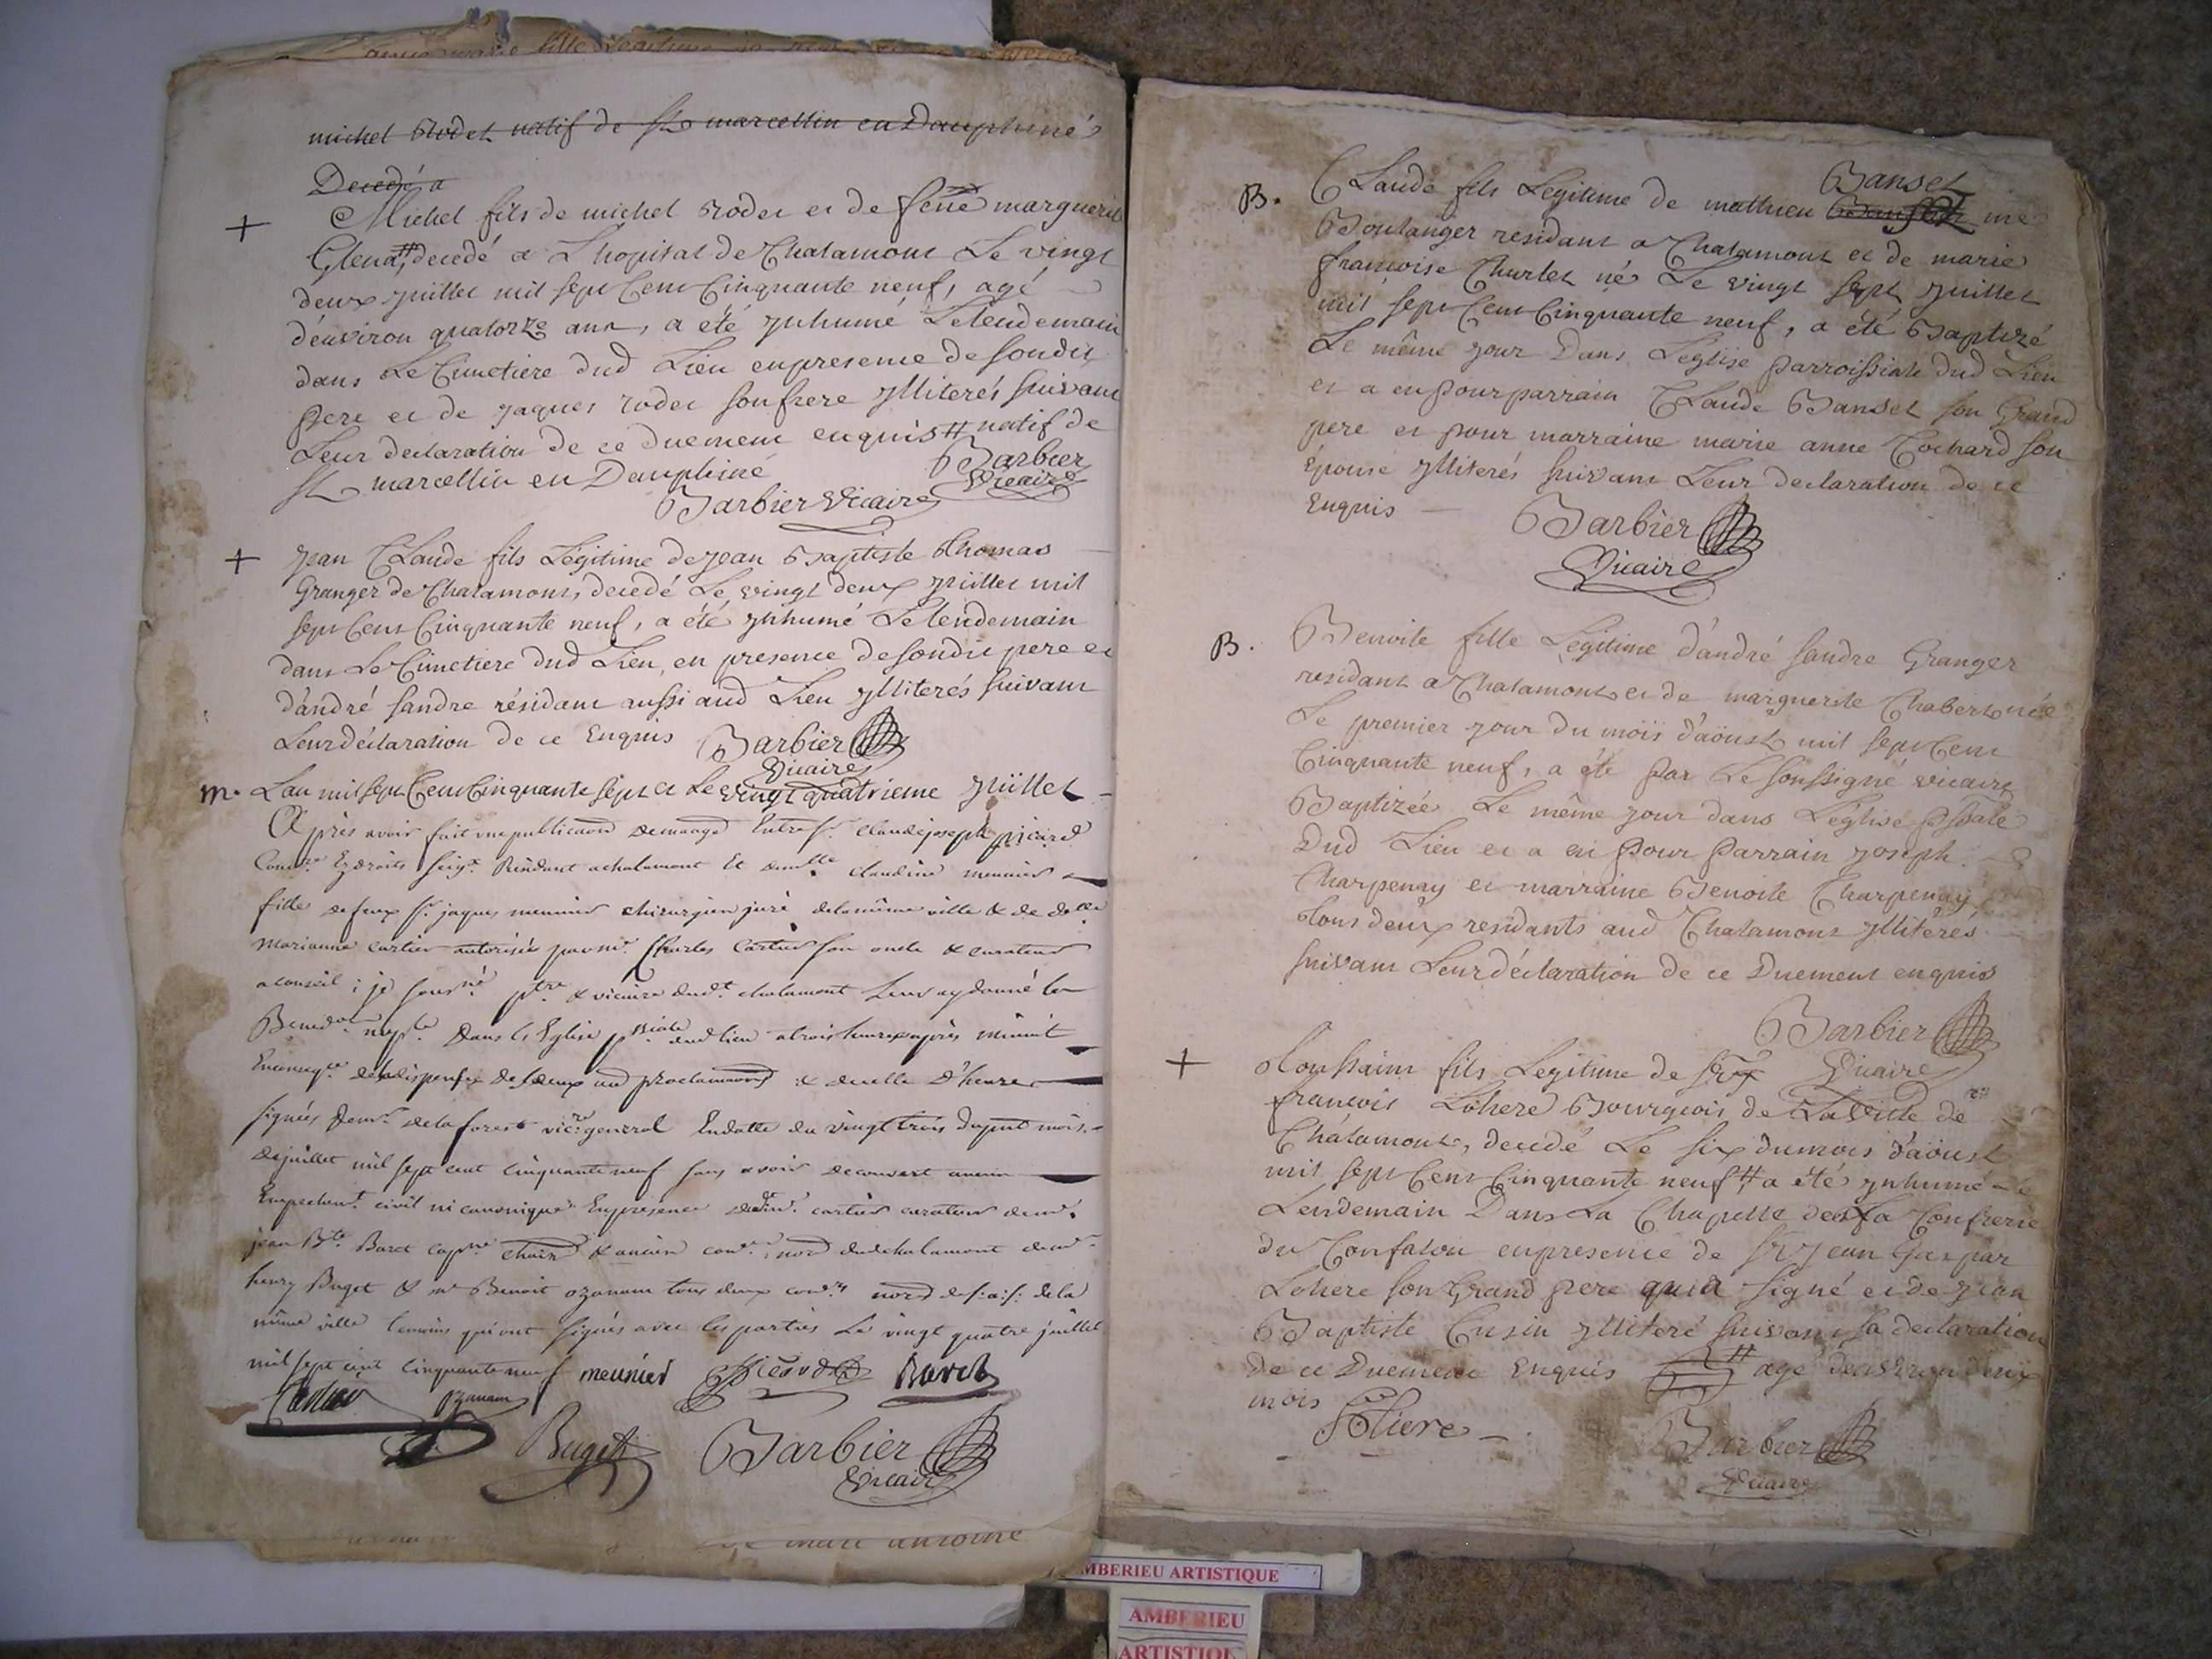 michel Rodet natif de St marcellin en Dauphiné
Decedé a
+ Michel fils de michel rodet et de feüe marguerite
Glena,# decedé a L'hopital de Chalamont Le vingt
deux juillet mil sept Cent Cinquante neuf, agé
d'environ quatorze ans, a été ynhumé Le lendemain
dans Le Cimetiere dud Lieu en presence de sondit
pere et de jaques rodet son frere ylliterés suivant
Leur declaration de ce duement enquis # natif de
St marcellin en Dauphiné
Barbier
Vicaire
Barbier Vicaire
+ jean Claude fils Légitime de jean Baptiste thomas
Granger de Chalamont, decedé Le vingt deux juillet mil
sept Cent Cinquante neuf, a été ynhumé Le lendemain
dans Le Cimetiere dud Lieu, en presence de sondit pere et
d'andré sandre résidant aussi aud Lieu ylliterés suivant
Leur déclaration de ce Enquis Barbier
Vicaire
m. L'an mil sept Cent Cinquante sept et Le vingt quatrieme juillet
Après avoir fait une publication de mariage Entre sr. claude joseph picard
fille de feux sr. jaques meunier chirurgien juré de la même ville & de dlle
marianne cartier autorisée par mr. Charles Cartier son oncle & curateur
a conseil ; je sousné ptre & vicaire dudt. chalamont Leur ay donné la
Bened. nupt. Dans l'Eglise dud lieu a trois heures après minuit
signées de mr. de la forest vicre general En datte du vingt trois du pnt mois
de juillet mil sept cent cinquante neuf sans avoir decouvert aucun
Empechent. civil ni canonique En presence dudt mr. cartier curateur de mr.
jean Bte. Baret
henry Buget & mr Benoit ozanam tous deux de la
même ville temoins qui ont signés avec les parties Le vingt quatre juillet
mil sept cent cinquante neuf meunier Picard Baret
Cartier ozanam
Buget Barbier
Vicaire
B. Claude fils Legitime de mathieu Bansel me
Boulanger residant a Chalamont et de marie
françoise Churlet né Le vingt sept juillet
mil sept Cent Cinquante neuf, a été Baptizé
Le même jour Dans L'eglise Parroissiale dud Lieu
et a eu pour parrain Claude Bansel son Grand
pere et pour marraine marie anne Cochard son
épouse ylliterés suivant Leur declaration de ce
Enquis — Barbier
Vicaire
B. Benoite fille Légitime d'andré sandre Granger
residant a Chalamont et de marguerite Chabert née
Le premier jour du mois d'aöust mil sept Cent
Cinquante neuf, a été Par Le soussigné vicaire
Baptizée Le même jour dans L'église
Dud Lieu et a eu Pour Parrain joseph
Charpenay et marraine Benoite Charpenay
tous deux residants aud Chalamont ylliterés
suivant Leur déclaration de ce Duement enquis
Barbier
Vicaire
+ toussaint fils Legitime de Sr
francois Lohere Bourgeois de La Ville de
Chalamont, decedé Le six du mois d'aöust
mil sept Cent Cinquante neuf,# a été ynhumé Le
Lendemain Dans La Chapelle de La Confrerie
du Confalon en presence de Sr jean Gaspar
Lohere son Grand pere qui a signé et de jean
Baptiste Cusin ylliteré suivant sa declaration
De ce Duement Enquis # agé d'environ deux
mois
Barbier
Vicaire
MBERIEU ARTISTIQUE
AMBERIEU
ARTISTIQU